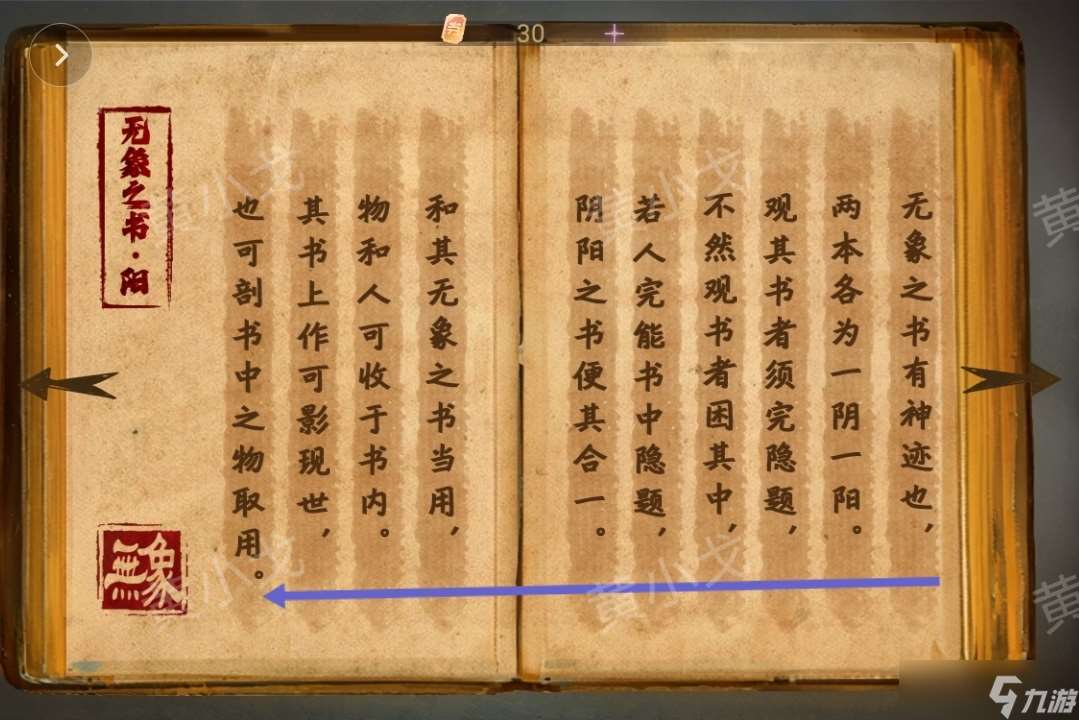 30
无象之书有神迹也，
两本各为一阴一阳。
观其书者须完隐题，
不然观书者困其中，
若人完能书中隐题，
阴阳之书便其合一。
和其无象之书当用，
物和人可收于书内。
其书上作可影现世，
也可剖书中之物取用。
无象之书·阳
無象
黄小戈
黄小戈
黄小戈
黄小戈
黄
黄
九游